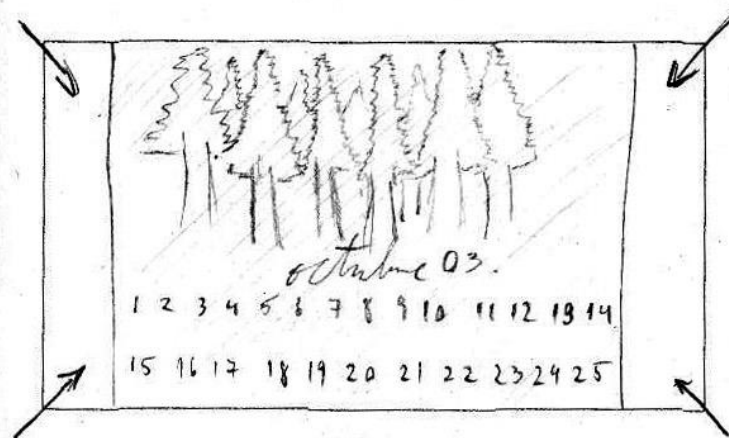 octubre 03.
1 2 3 4 5 6 7 8 9 10 11 12 13 14
15 16 17 18 19 20 21 22 23 24 25